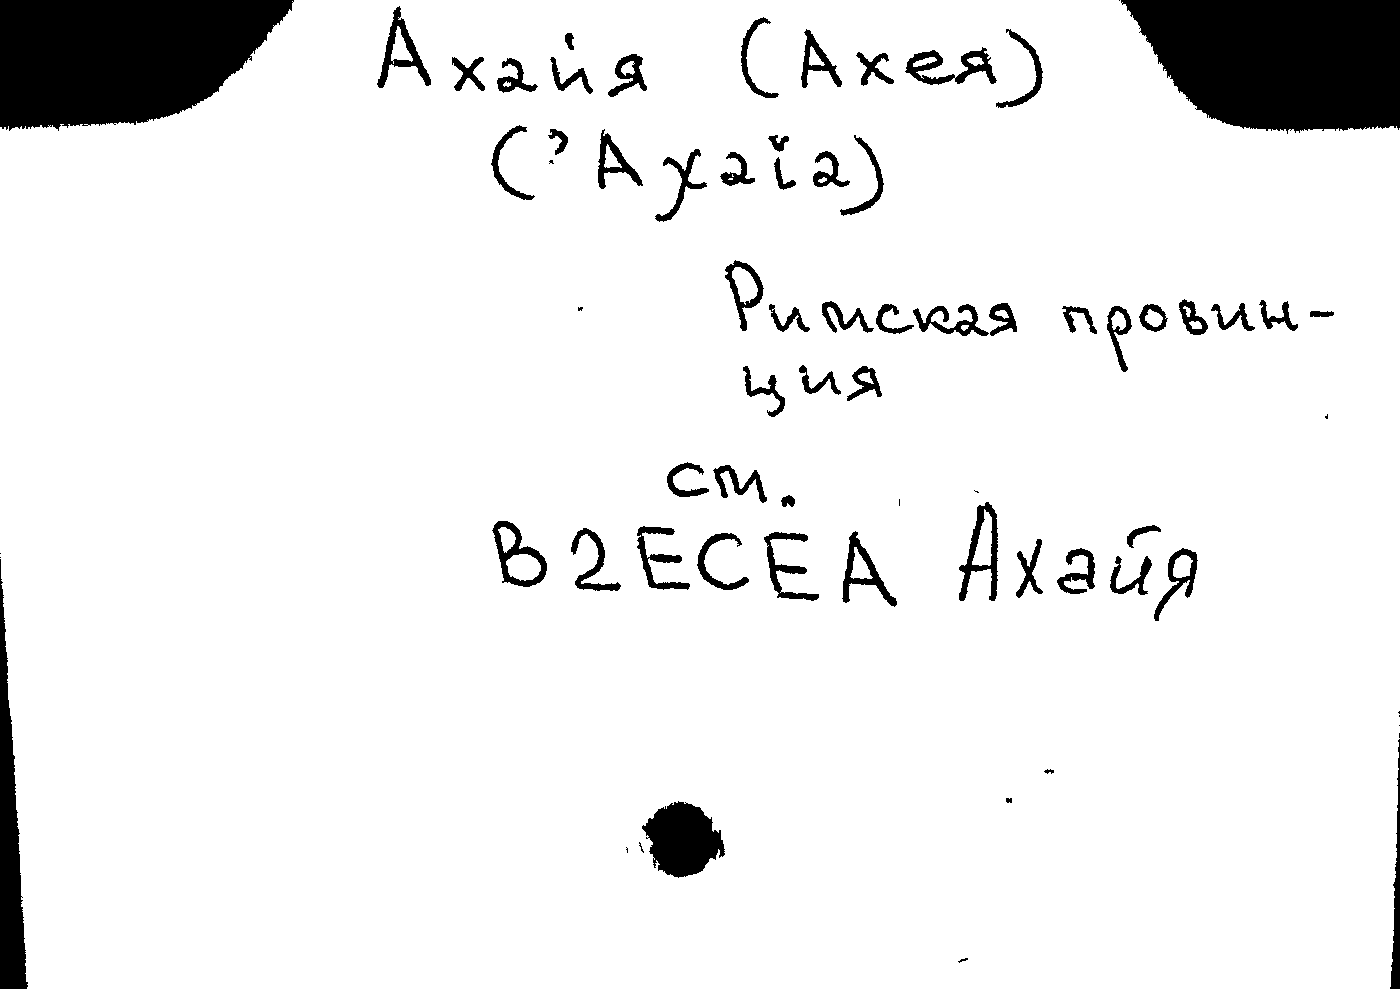 Ахайя (Ахея)
(’Αχαΐα)
Римская провин-
ция
см.
B2ECEA Ахайя